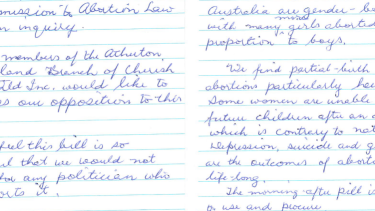 mission to Abortion Law
n inquiry.
members of the Atherton
land Branch of Cherish
Qld Inc. would like to
s our opposition to this
ful this bill is so
l that we would not
for any politician who
orts it.
Australia are gender-b
with many girls aborted
proportion to boys.
We find partial-birth
abortions particularly ho
Some women are unable
future children after an a
which is contrary to nat
Depression, suicide and g
are the outcomes of abort
life-long.
The morning-after pill is
to use and procure